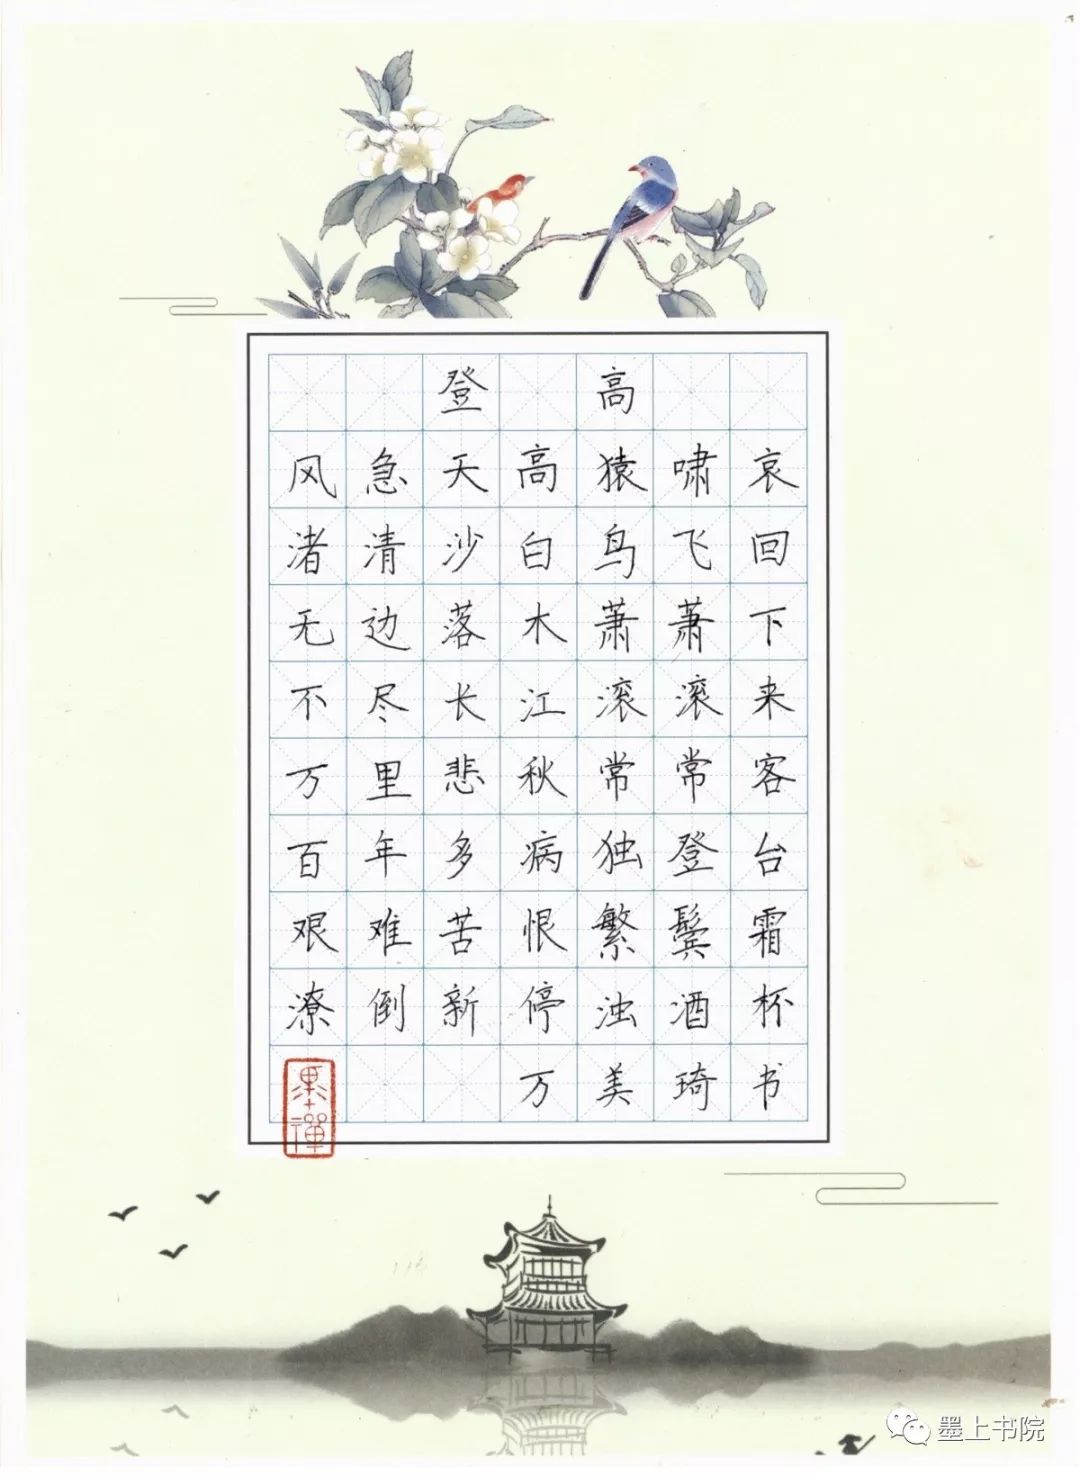 登高
风急天高猿啸哀
渚清沙白鸟飞回
无边落木萧萧下
不尽长江滚滚来
万里悲秋常常客
百年多病独登台
艰难苦恨繁鬓霜
潦倒新停浊酒杯
万美琦书
墨禅
墨上书院